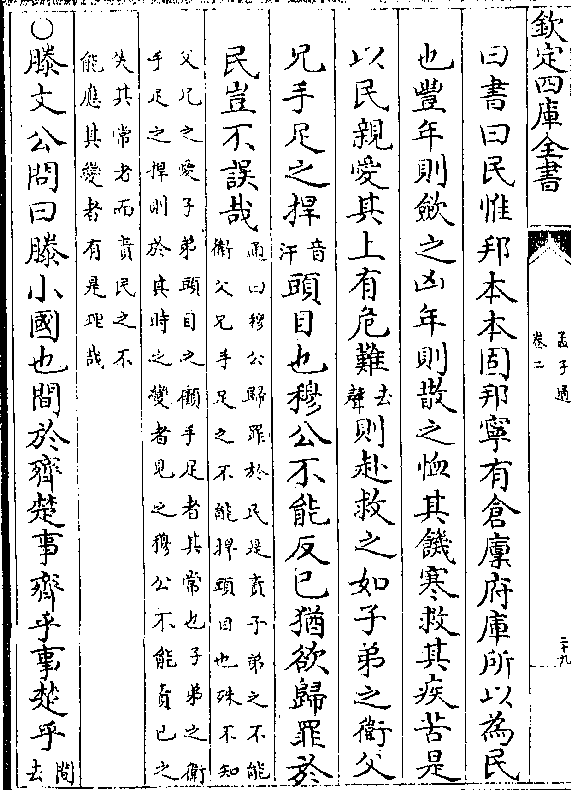 欽定四庫全書
孟子通
卷二
二十九
曰書曰民惟邦本本固邦寧有倉廩府庫所以為民
也豐年則斂之凶年則散之恤其饑寒救其疾苦是
以民親愛其上有危難去聲則赴救之如子弟之衛父
兄手足之捍音汗頭目也穆公不能反已猶欲歸罪於
民豈不誤哉通曰穆公歸罪於民是責子弟之不能
衛父兄手足之不能捍頭目也殊不知
父兄之愛子弟頭目之顧手足者其常也子弟之衛
手足之捍則於其時之變者見之穆公不能責已之
失其常者而責民之不
能應其變者有是理哉
○滕文公問曰滕小國也間於齊楚事齊乎事楚乎間去